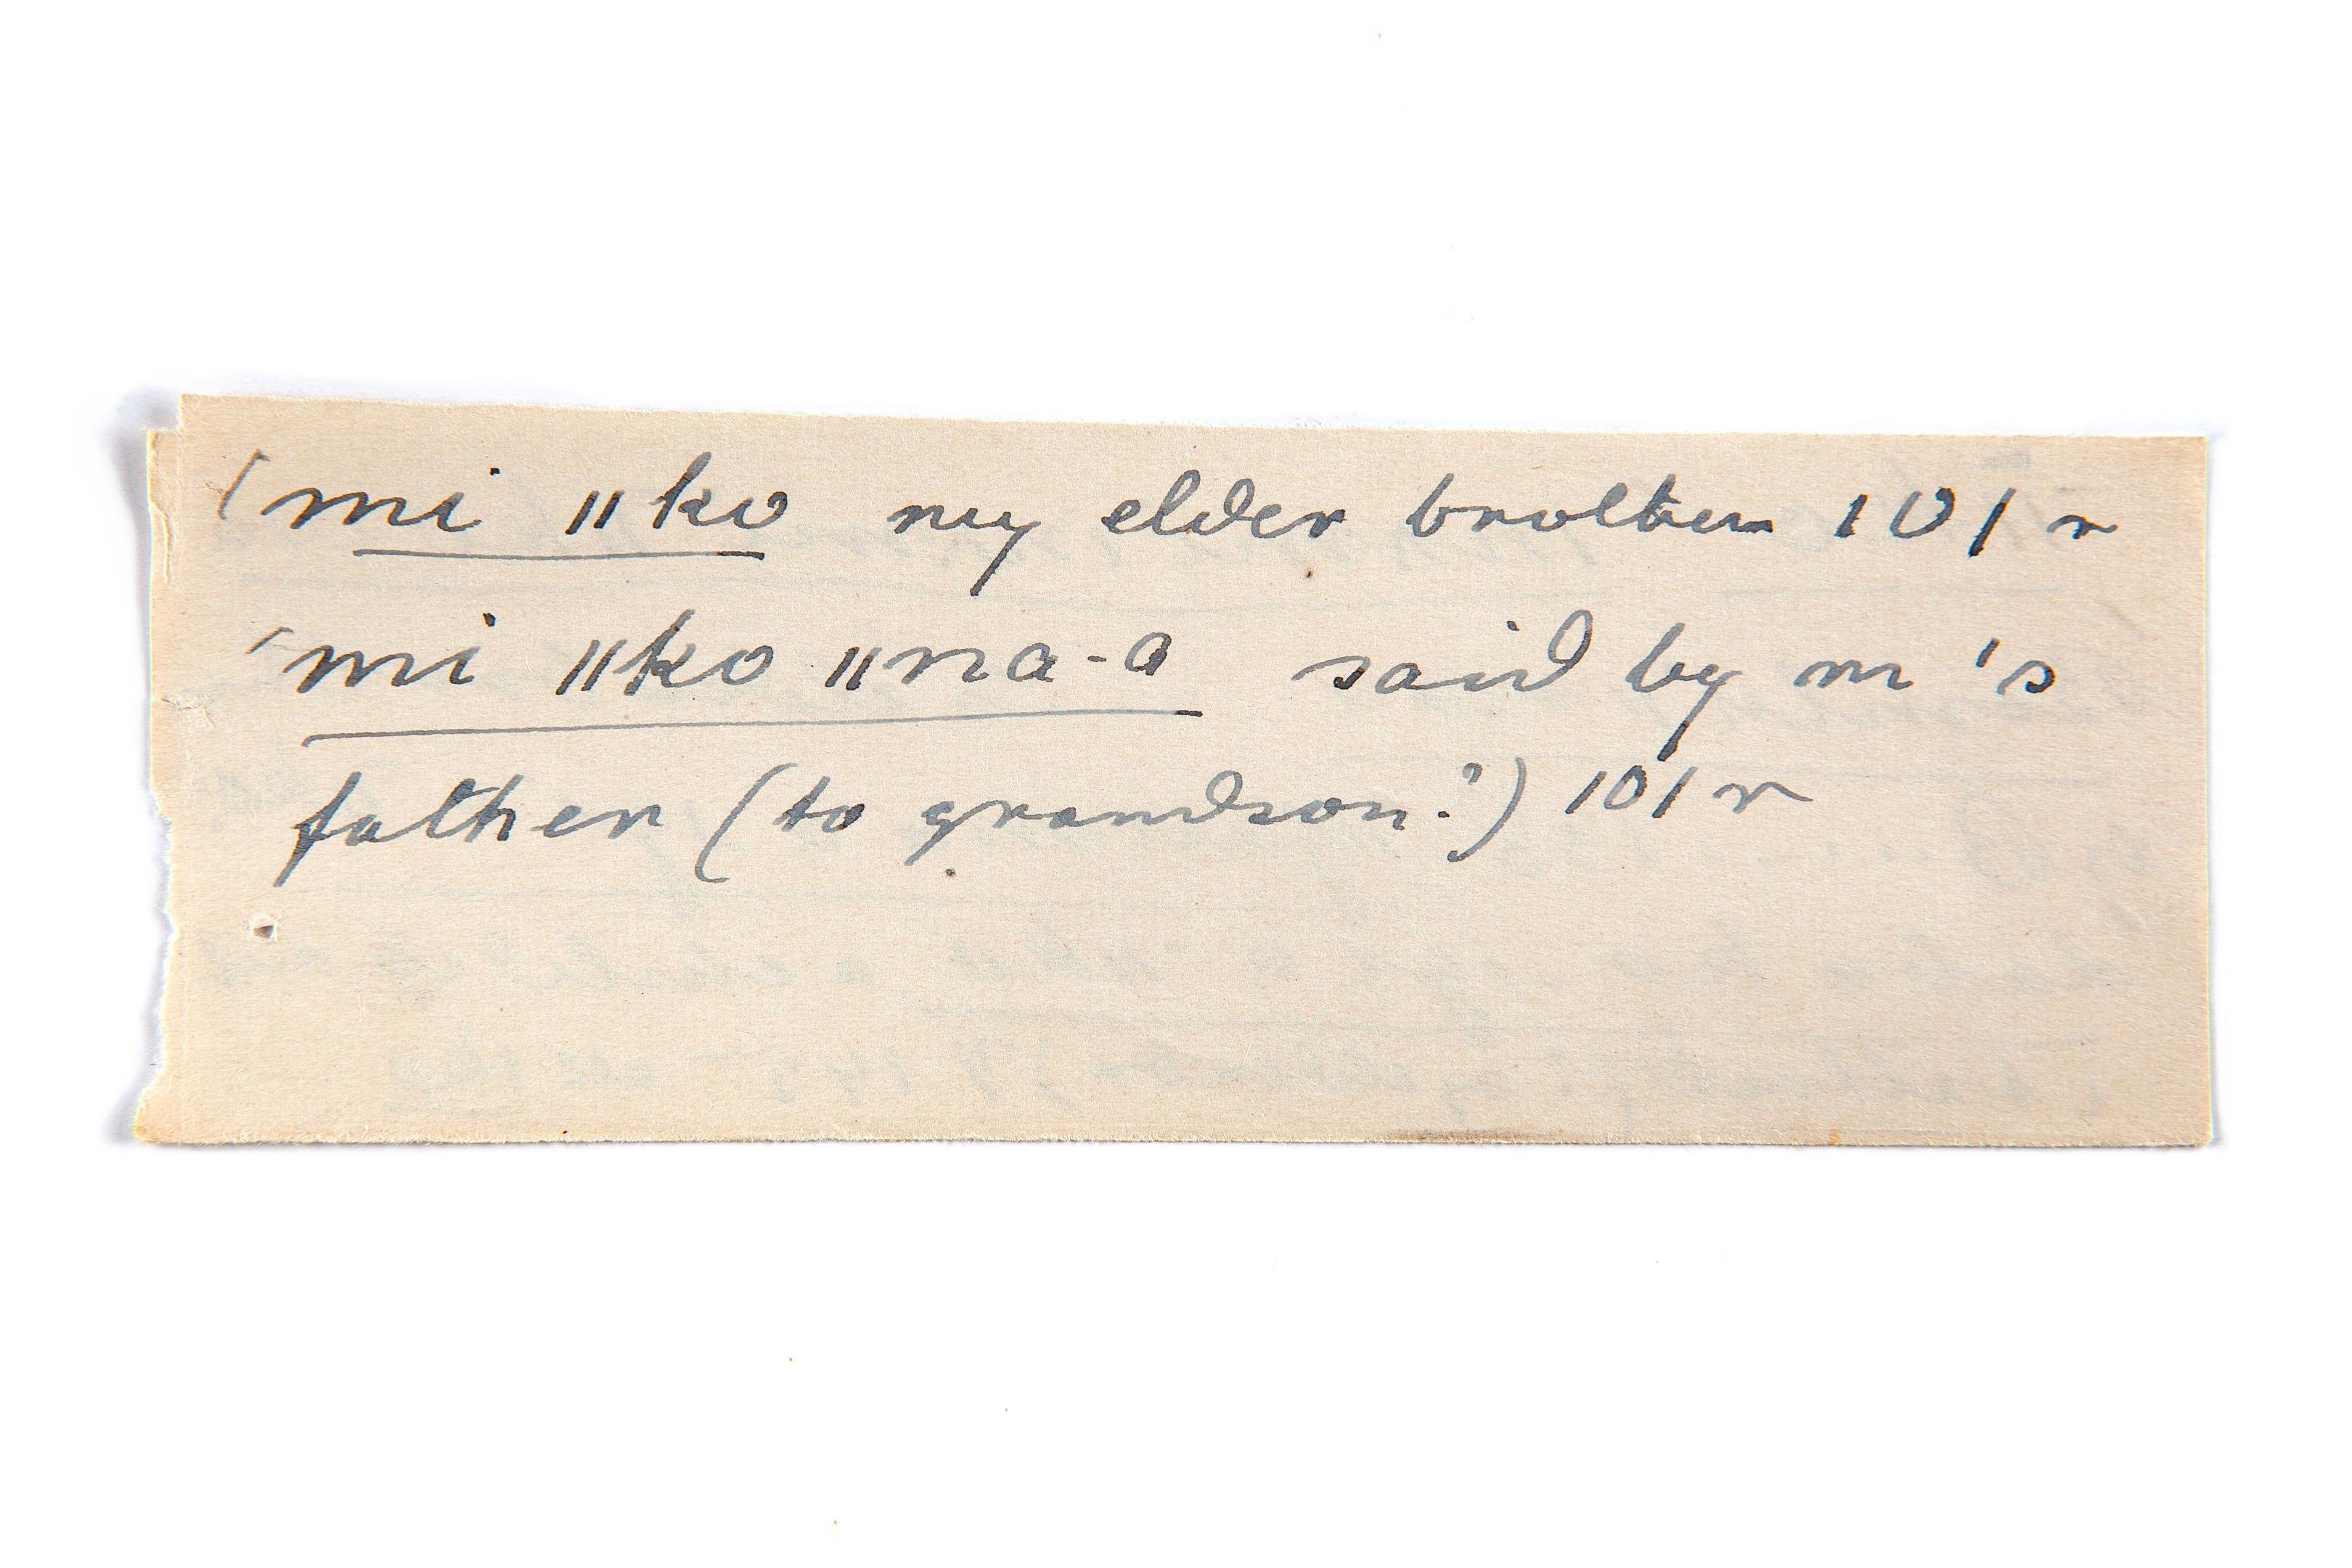 (mi ǁko my elder brother 101 r
'mi ǁko ǁna-a said by m's
father (to grandson?) 101 r